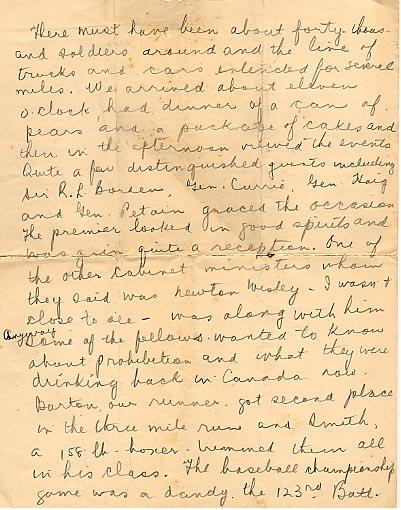 There must have been about forty-thous-
and soldiers around and the line of
trucks and cars extended for several
miles. We arrived about eleven
o.clock, had dinner of a can of
pears and a package of cakes and
then in the afternoon viewed the events.
Quite a few distinguished guests including
Sir R.L. Borden, Gen. Currie, Gen. Haig
and Gen. Petain graced the occasion
The premier looked in good spirits and
was given quite a reception. One of
the other cabinet ministers whom
they said was Newton Wesley - I wasn't
close to see - was along with him
Anyway some of the fellows wanted to know
about prohibition and what they were
drinking back in Canada now.
Burton, our runner got second place
in the three mile run and Smith,
a 158 lb. boxer. trimmed them all
in his class. The baseball championship
game was a dandy, the 123rd Batt.